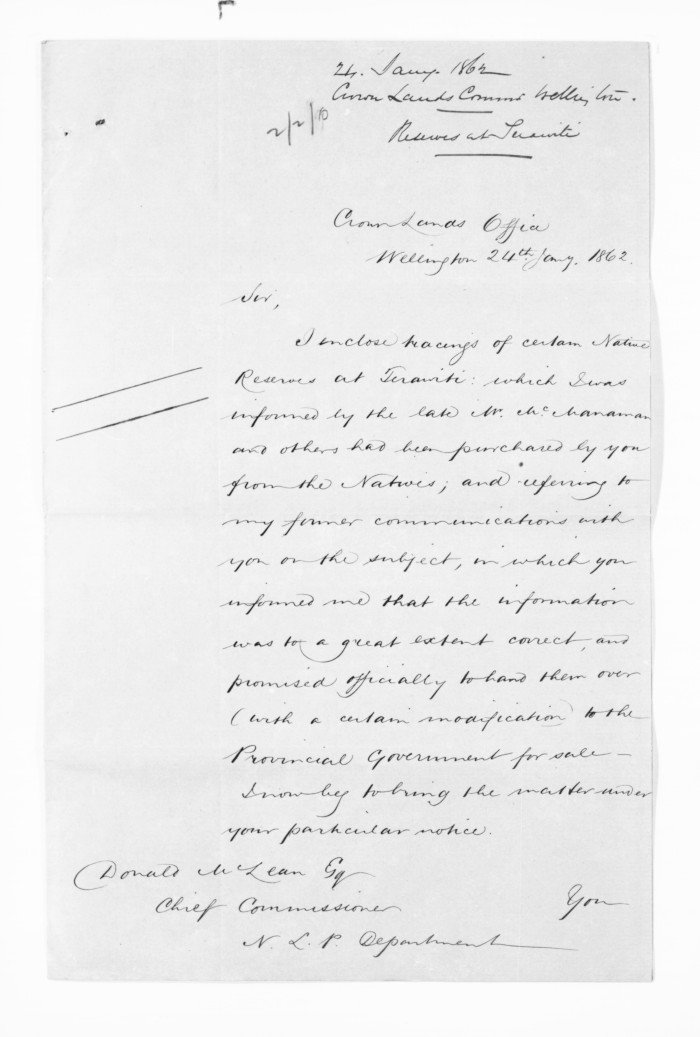 24. Jany. 1862
Crown Lands Commr Wellington.
2/2/10
Reserves at Terawiti
Crown Lands Office
Wellington 24th Jany. 1862.
Sir,
I enclose tracings of certain Native
Reserves at Terawiti: which I was
informed by the late Mr. McManaman
and others had been purchased by you
from the Natives; and referring to
my former communications with
you on the subject, in which you
informed me that the information
was to a great extent correct, and
promised officially to hand them over
(with a certain modification) to the
Provincial Government for sale —
I now beg to bring the matter under
your particular notice.
Donald McLean Esq
Chief Commissioner
You
N. L. P. Department